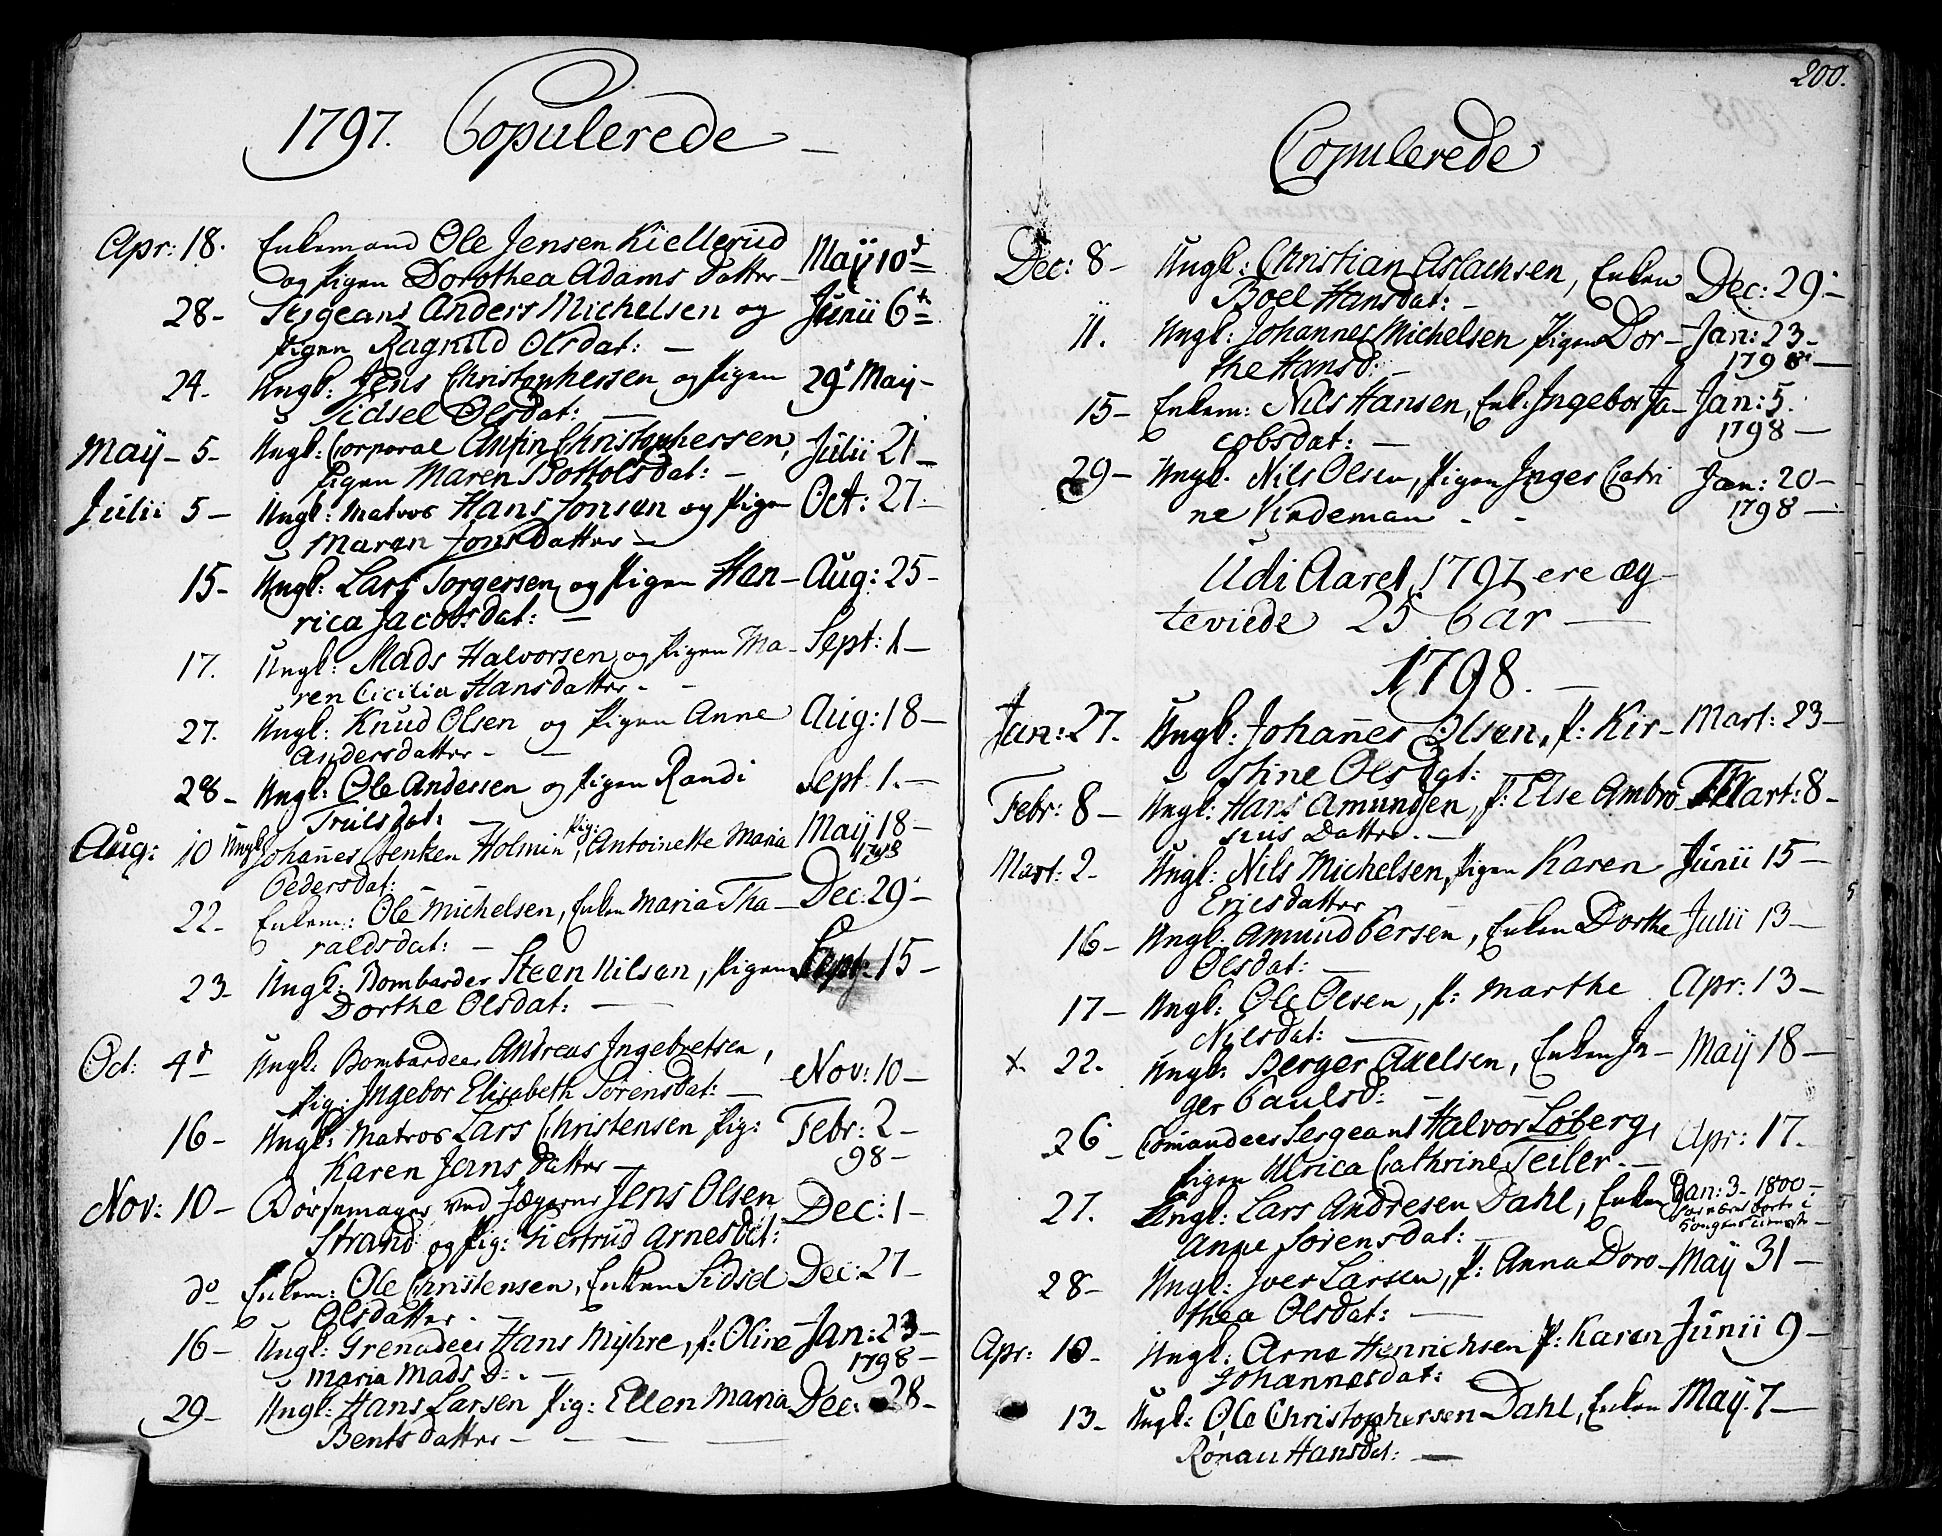 1797. Copulerede
Apr: 18. Enkemand Ole Jensen Kiellerud Maÿ 10d
og Pigen Dorothea Adams Datter
28 Sergeant Anders Michelsen og Junii 6te
Pigen Ragnild Olsdat:
24. Ungk: Jens Christophersen og Pigen 29d Maÿ
Sidsel Olsdat:
Maÿ 5 Ungk: Corporal Anfin Christophersen, Julii 21
Pigen Maren Bottolsdat:
Julii 5 Ungk: Matros Hans Jonsen og Pigen Oct: 27
Maren Jons Datter
15 Ungk: Lars Torgersen og Pigen Hen- Aug: 25
rica Jacobsdat:
17. Ungk: Mads Halvorsen og Pigen Ma- Sept: 1
ren Cicilia Hansdatter
27. Ungk: Knud Olsen og Pigen Anne Aug: 18
Andersdatter
28 Ungk: Ole Andersen og Pigen Randi Sept. 1.
Truls dat:
Aug: 10 Ungk Johañes Henken Holmin, Pig: Antoinette Maria Maÿ 18
Pedersdat: 1798
22 Enkem: Ole Michelsen, Enken Maria Tha- Dec: 29
raldsdat:
23 Ungk. Bombarder Steen Nilsen, Pigen Sept: 15
Dorthe Olsdat:
Oct: 4d Ungk: Bombardeer Andreas Ingebretsen, Nov: 10
Pig: Ingebor Elisabeth Sørensdat:
16 Ungk: Matros Lars Christensen Pig: Febr: 2
Karen Jens datter 98
Nov: 10 Børsemager ved Jægerne Jens Olsen Dec: 1
Strand og Pig: Giertrud Arnesdat:
do Enkem: Ole Christensen, Enken Sidsel Dec: 27
Olsdatter.
16 Ungk: Grenadeer Hans Myhre, P: Oline Jan: 23
Maria Mads D: 1798
29 Ungk: Hans Larsen Pig: Ellen Maria Dec: 28
Bents datter
200.
Copulerede
Dec: 8 Ungk: Christian Aslachsen, Enken Dec: 29
Boel Hansdat:
11. Ungk: Johannes Michelsen Pigen Dor- Jan: 23
the Hansd: 1798
15 Enkem: Nils Hansen, Enk: Ingebor Ja- Jan: 5.
cobsdat: 1798
29 Ungk. Nils Olsen, Pigen Inger Catri Jan: 20
ne Kindeman 1798
Udi Aaret 1797 ere æg
teviede 25 Par
1798.
Jan: 27. Ungk: Johañes Olsen, P: Kir- Mart: 23
stine Olsdat:
Febr: 8 Ungk: Hans Amundsen, P: Else Ambro Mart: 8
sius Datter.
Mart: 2 Ungk: Nils Michelsen, Pigen Karen Junii 15
Ericsdatter
16 Ungk: Amund Persen, Enken Dorthe Julii 13
Olsdat:
17 Ungk: Ole Olsen, P: Marthe Apr: 13
Nilsdat:
x 22. Ungk: Berger Axelsen, Enken In- Maÿ 18
ger Paulsd:
26 Comandeersergeant Halvor Løberg, Apr: 17.
Pigen Ulrica Cathrine Teiler.
27. Ungk: Lars Andresen Dahl, Enken Jan: 3. 1800
Anne Sørensdat:
28 Ungk: Iver Larsen, P: Anna Doro- Maÿ 31
thea Olsdat:
Apr: 10 Ungk: Arne Henrichsen P: Karen Junii 9
Johannesdat:
13 Ungk: Ole Christophersen Dahl, Enken Maÿ 7
Ronau Hansdat: